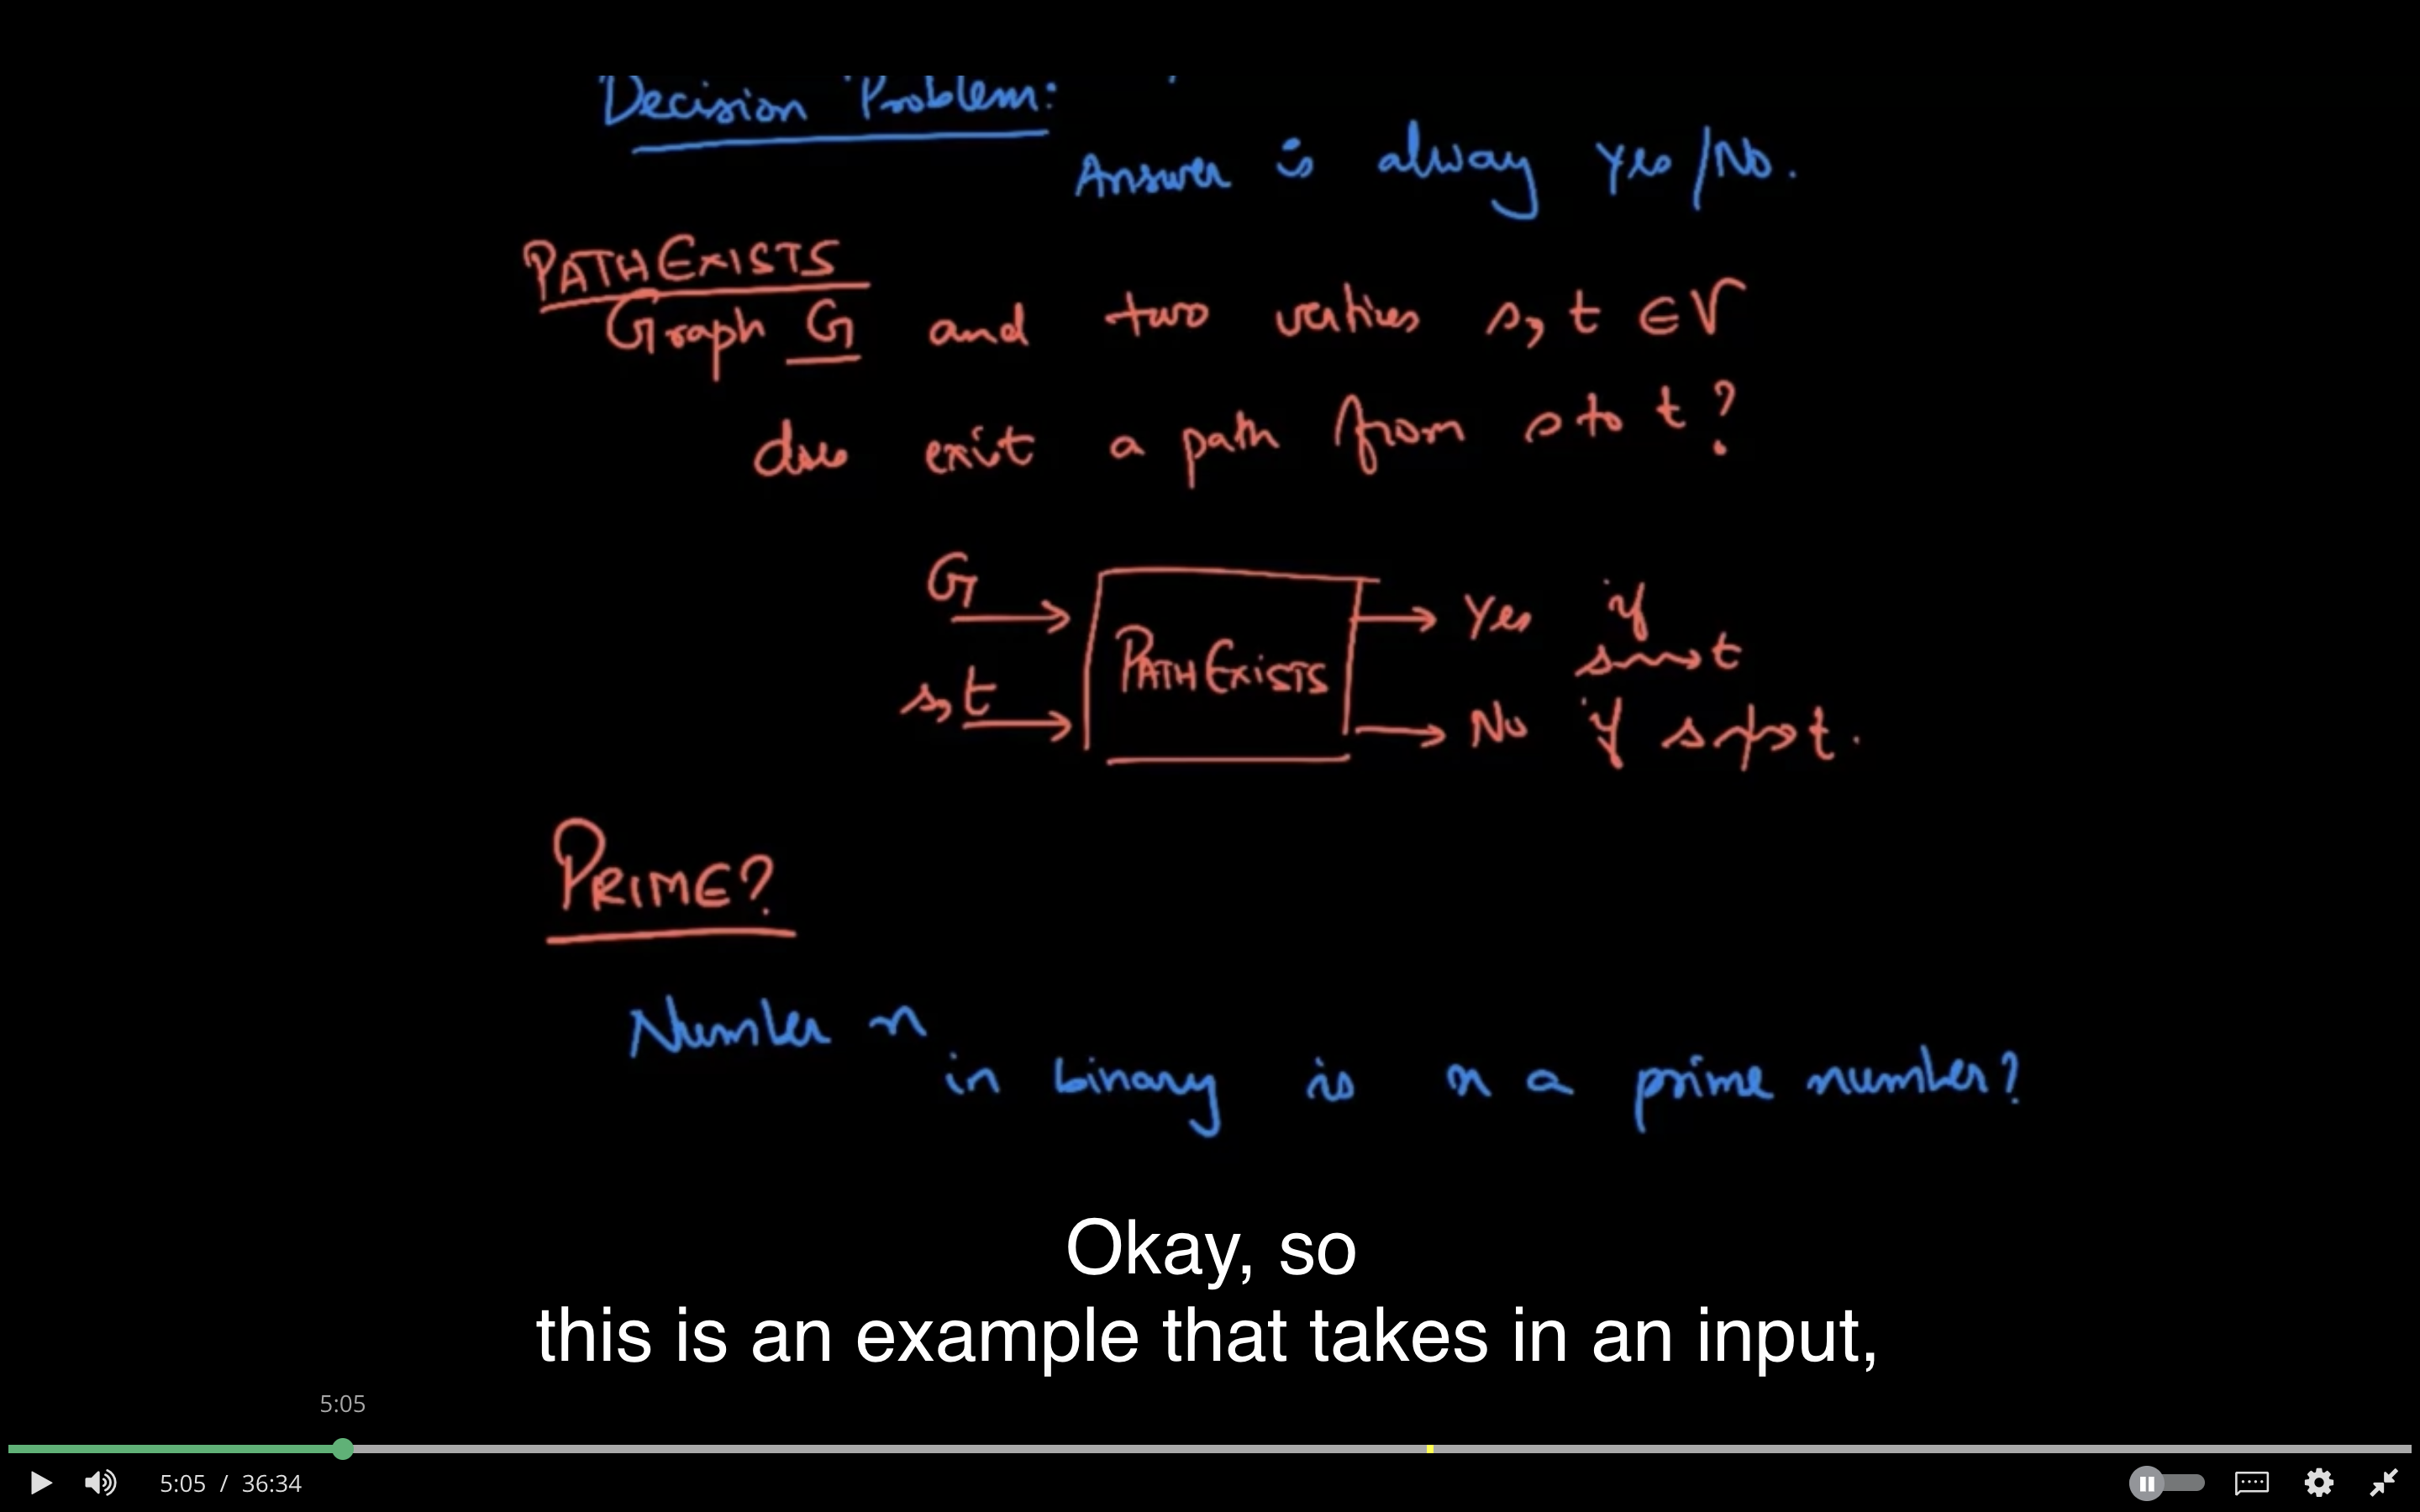 Decision Problem:
Answer is alway Yes/No.
PATHEXISTS
Graph G and two vertices s, t ∈ V
does exit a path from s to t?
G
s, t
PATHEXISTS
Yes if
s ⇝ t
No if s ⇝̸ t.
PRIME?
Number n
in binary is n a prime number?
Okay, so
this is an example that takes in an input,
5:05
5:05 / 36:34